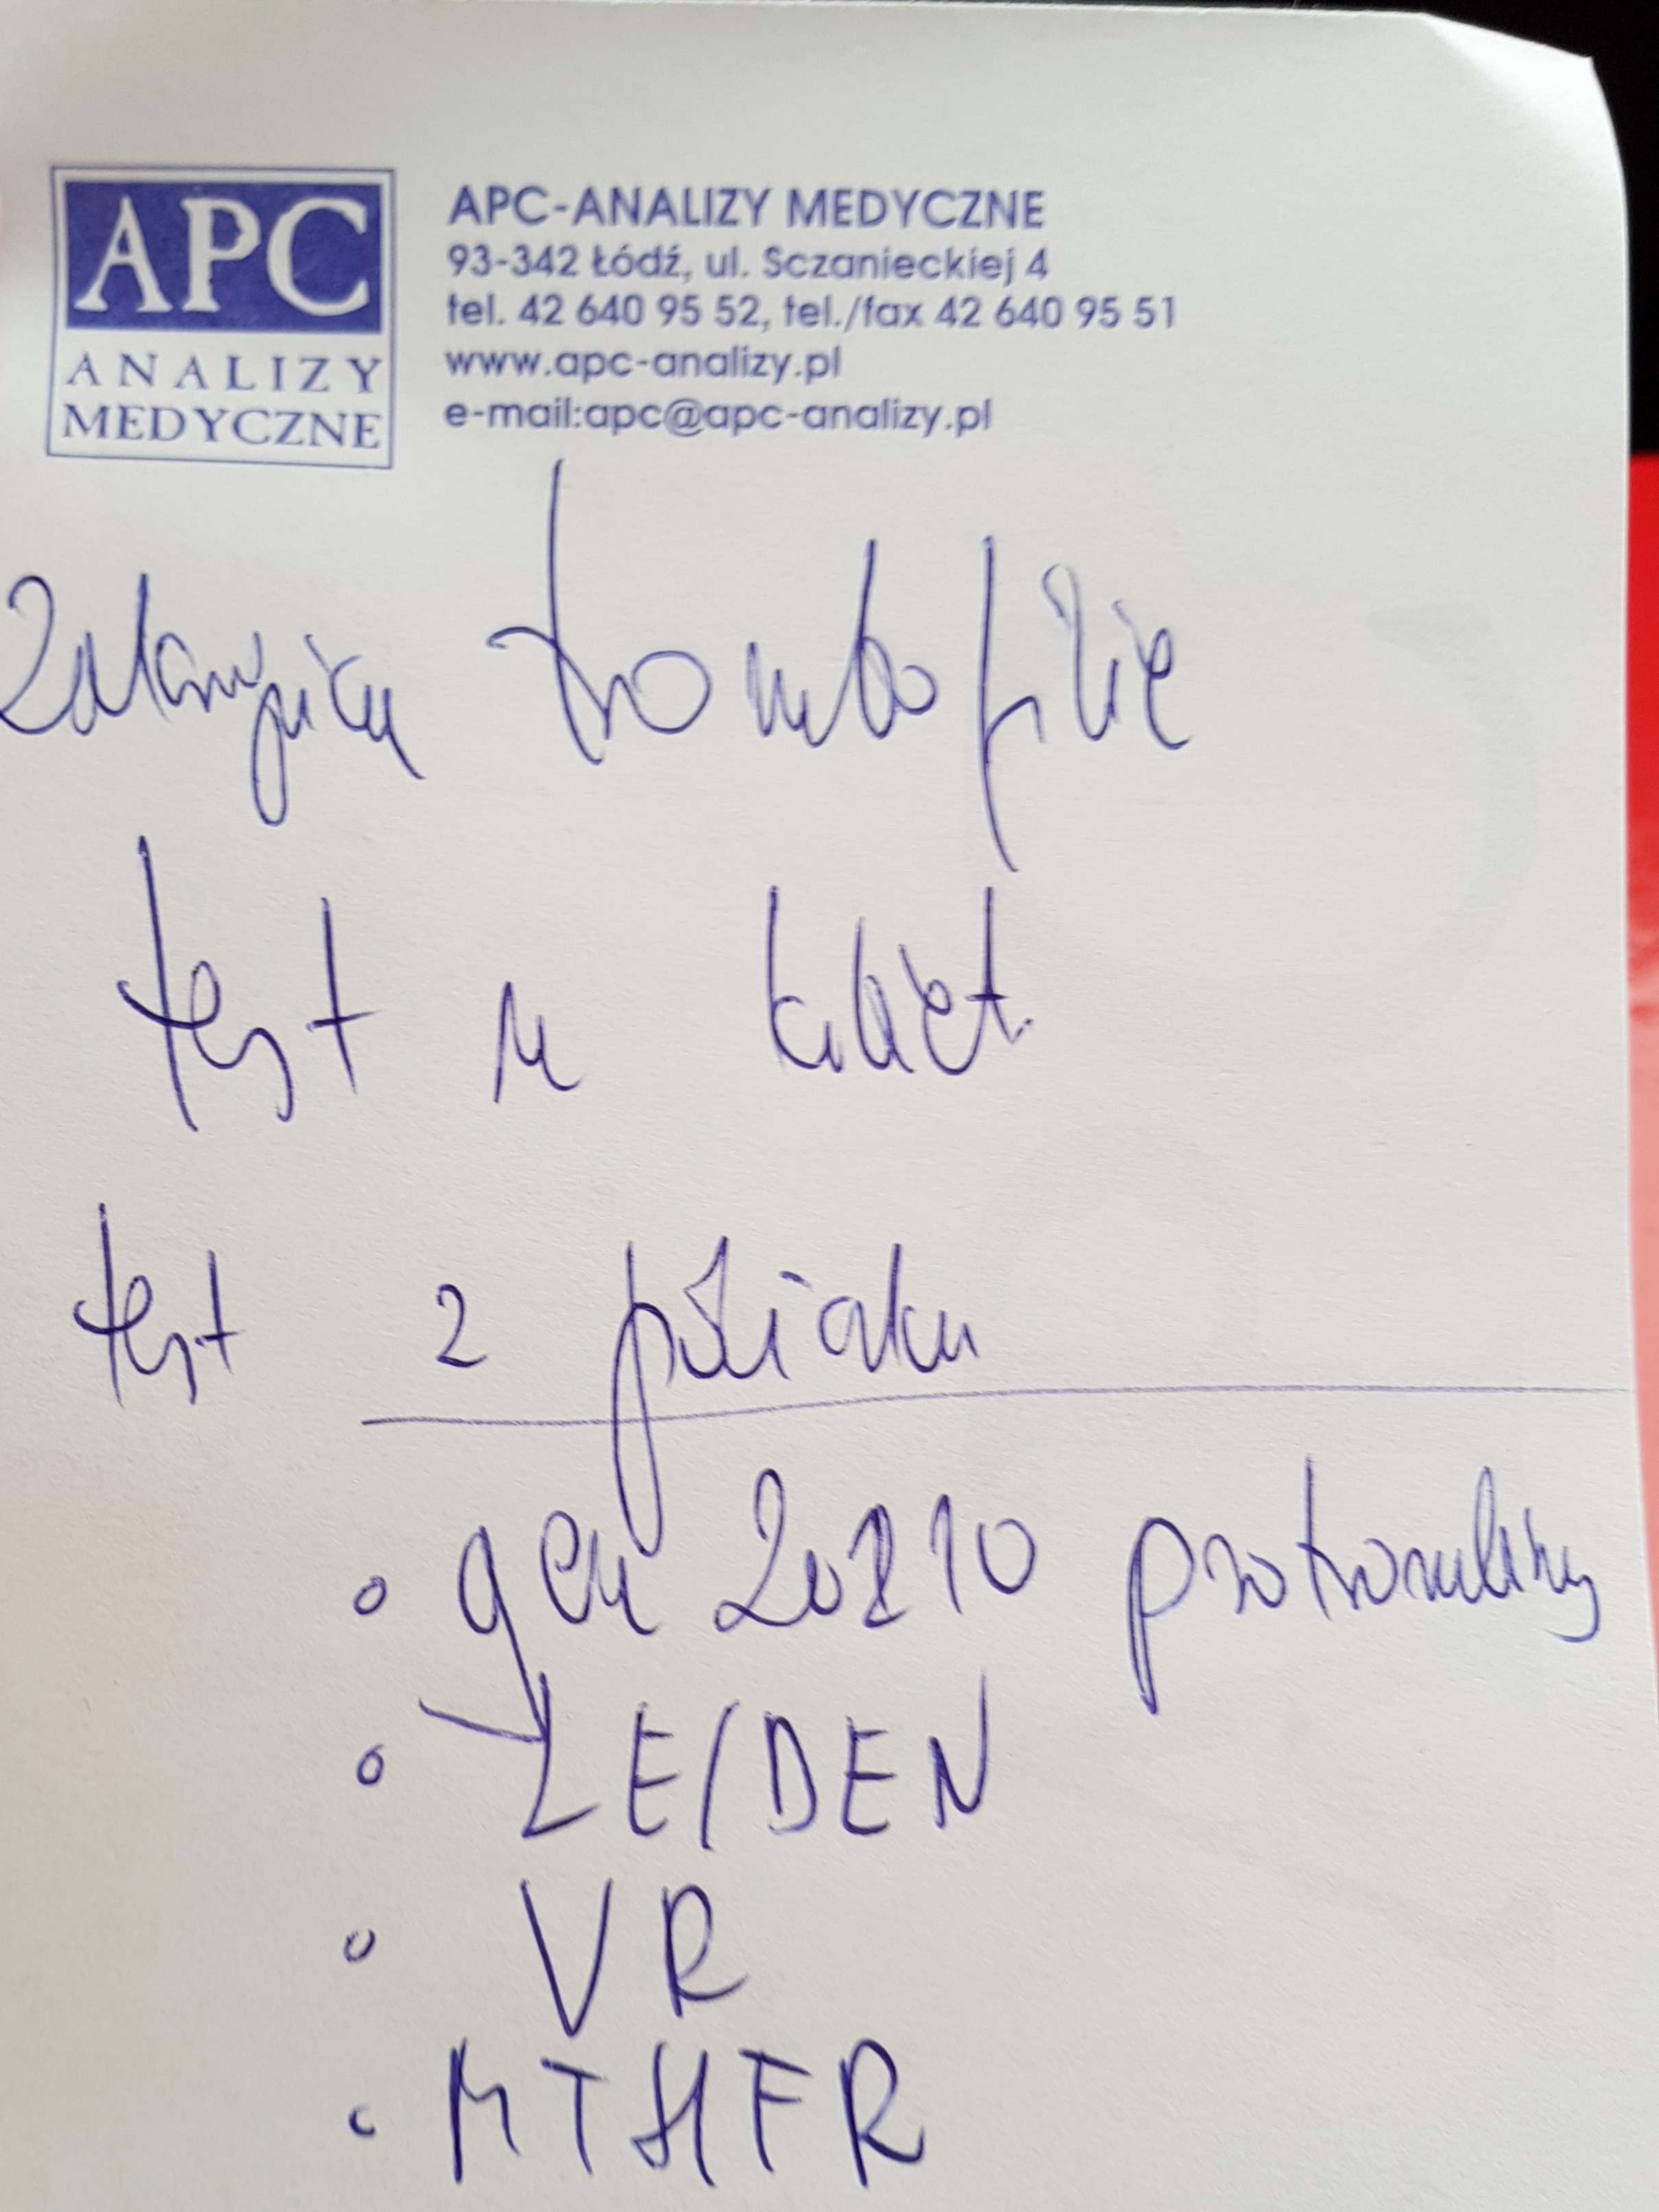 APC
ANALIZY
MEDYCZNE
APC-ANALIZY MEDYCZNE
93-342 Łódź, ul. Sczanieckiej 4
tel. 42 640 95 52, tel./fax 42 640 95 51
www.apc-analizy.pl
e-mail:apc@apc-analizy.pl
trombofilie
test
test z
gen 20210 protrombiny
LEIDEN
VR
MTHFR